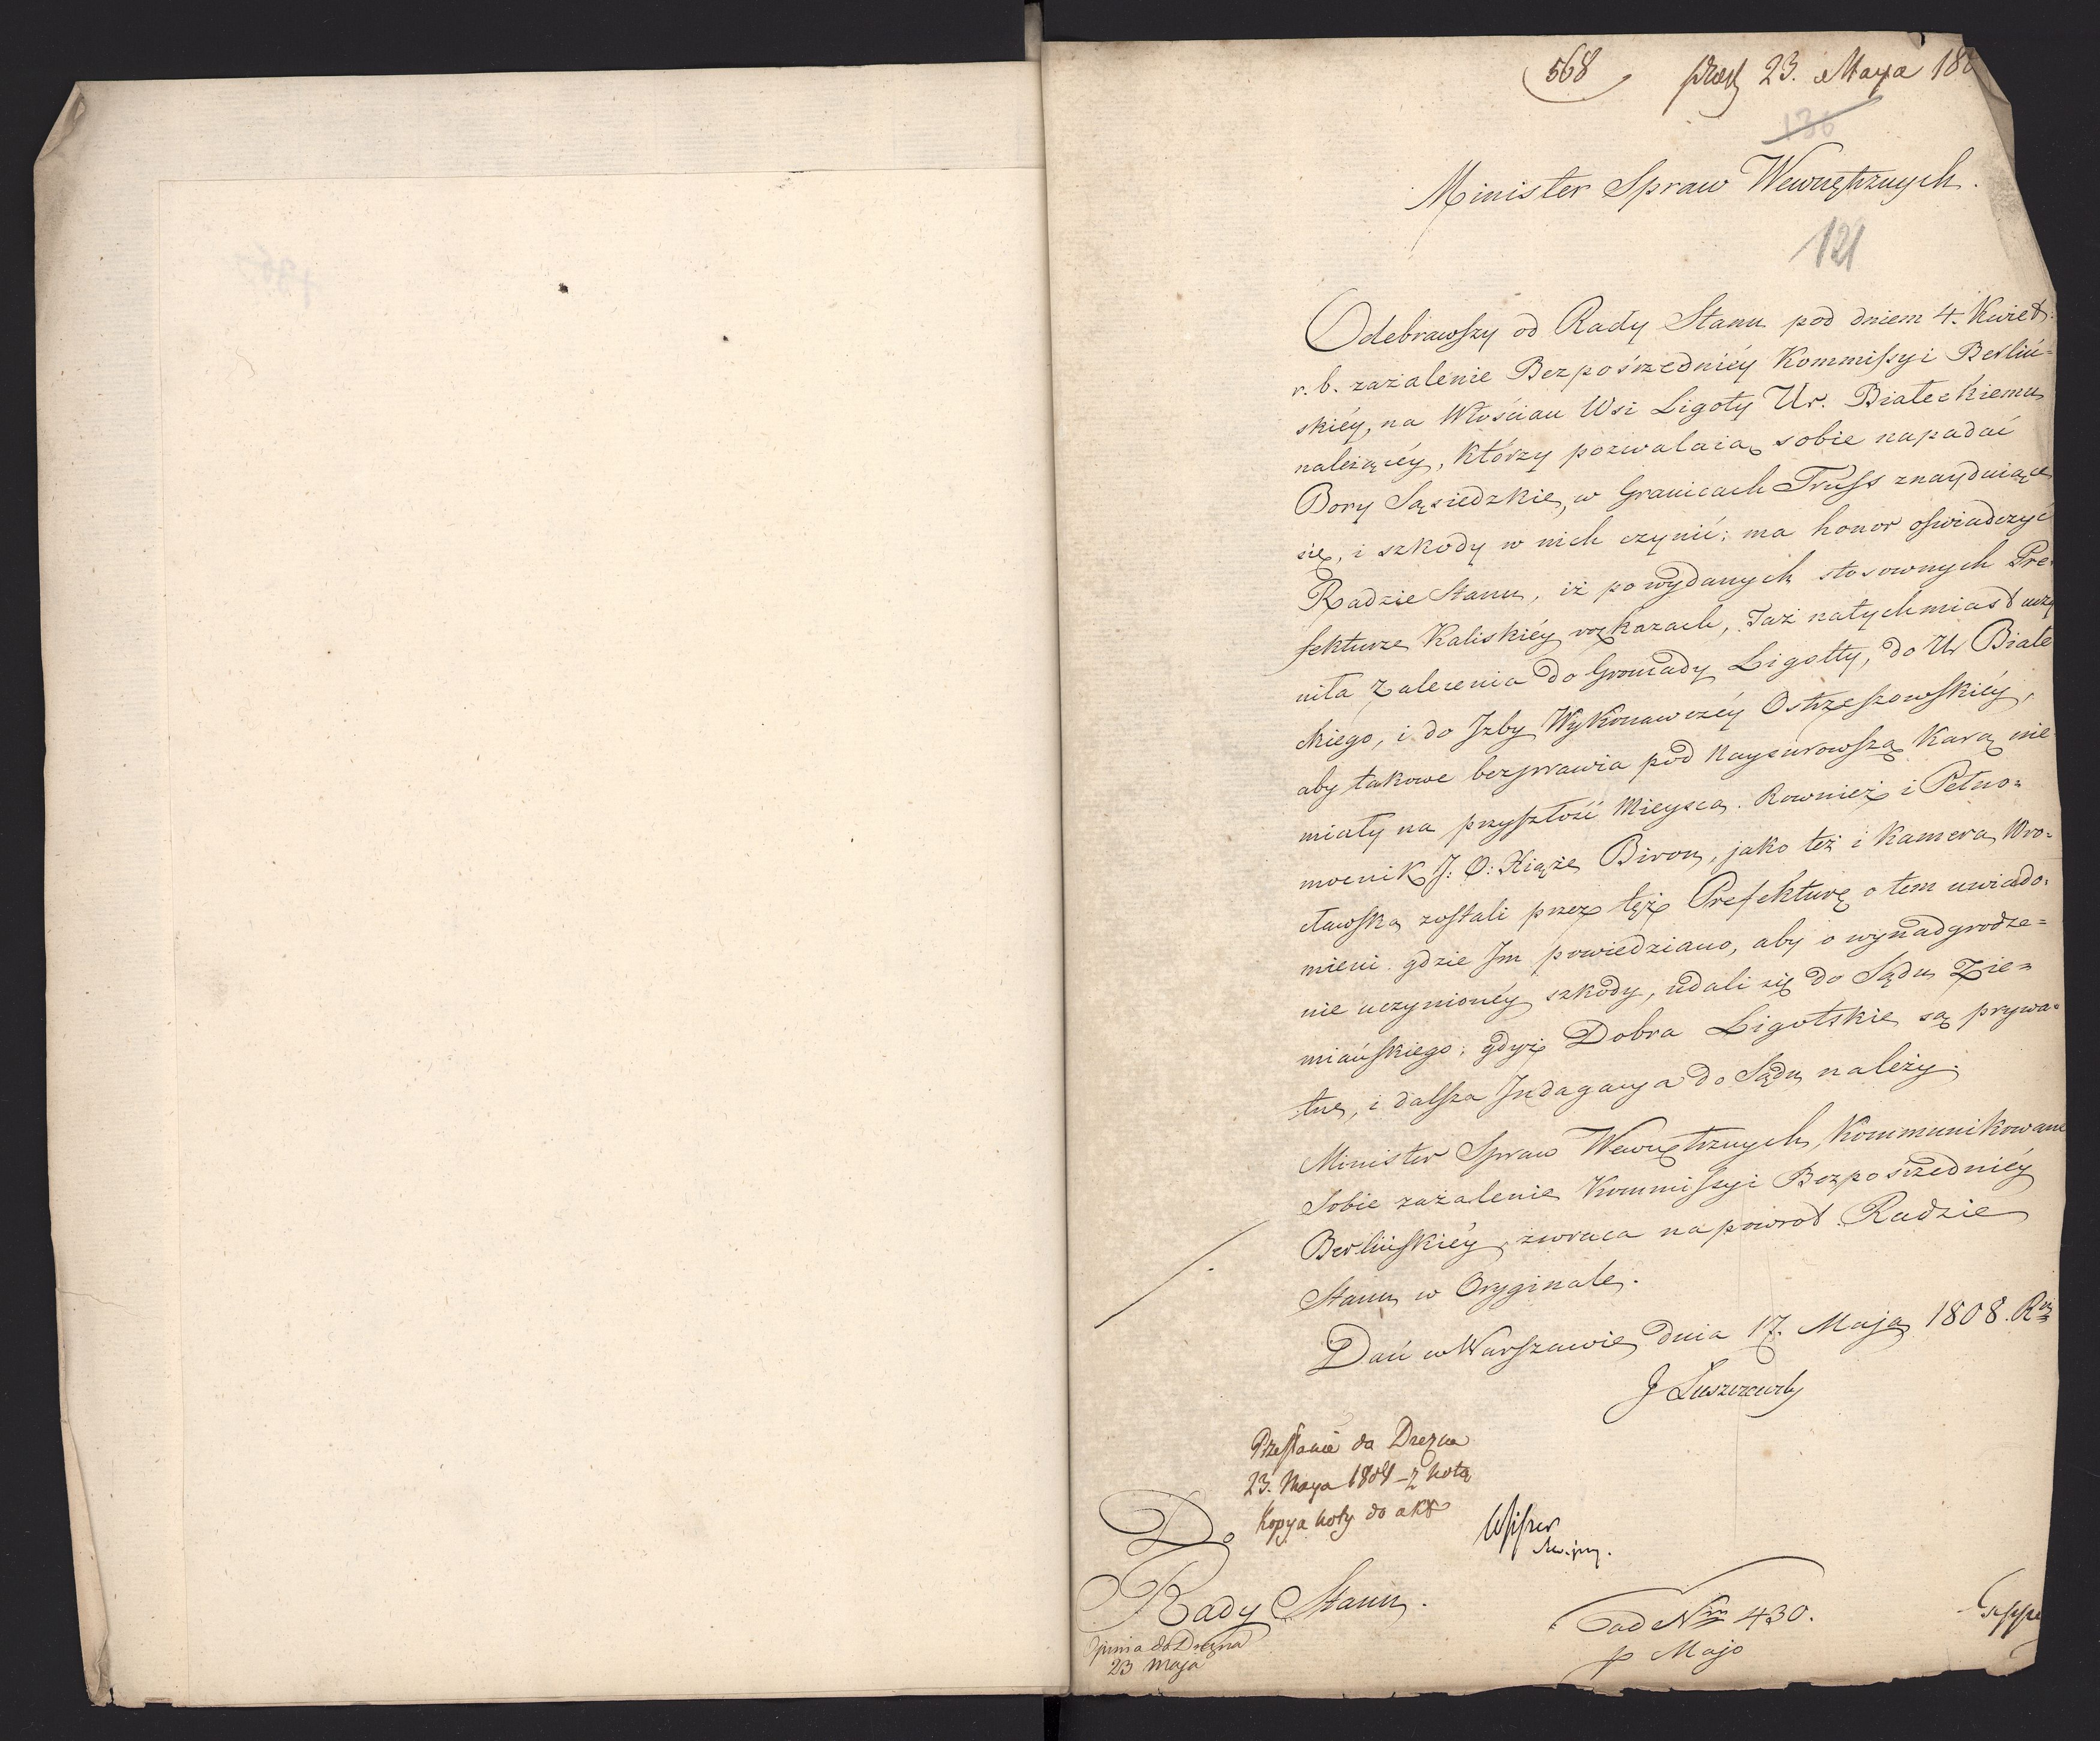 568 praes 23. Maya 180
136
Minister Spraw Wewnętrznych.
121
Odebrawszy od Rady Stanu pod dniem 4. Kwiet:
r. b. zażalenie Bezpośrzedniéy Kommissyi Berliń=
skiéy, na Włościan Wsi Ligoty Ur. Białeckiemu
należącéy, którzy pozwalaią sobie napadać
Bory Sąsiedzkie, w Granicach Pruss znayduiące
się, i szkody w nich czynić; ma honor oświadczyć
Radzie Stanu, iż po wydanych stosownych Pre=
fekturze Kaliskiéy rozkazach, Taż natychmiast uczy
niła Zalecenia do Gromady Ligotty, do Ur Białe
ckiego, i do Izby Wykonawczéy Ostrzeszowskiéy,
aby takowe bezprawia pod Naysurowszą Karą nie
miały na przyszłość Mieysca. Rownież i Pełno=
mocnik J: O: Xiąże Biron, jako też i Kamera Wro=
cławska zostali przez tęż Prefekturę o tem uwiado=
mieni gdzie Im powiedziano, aby o wynadgrodze=
nie uczynionéy szkody, udali się do Sądu Zie=
miańskiego; gdyż Dobra Ligotskie są prywa=
tne, i dalsza Indagacya do Sądu należy.
Minister Spraw Wewnętrznych, Kommunikowane
Sobie zażalenie Kommissyi Bezpośrzedniéy
Berlińskiéy, zwraca napowrot Radzie
Stanu w Oryginale.
Dań w Warszawie dnia 17. Maja 1808. Ru
J Łuszczewski
Przesłanie do Drezna
23. Maya 1808 - z notą
Kopya noty do akt
Do
Rady Stanu.
Opinia do Drezna
23 Maja
ad Nrm 430.
Majo